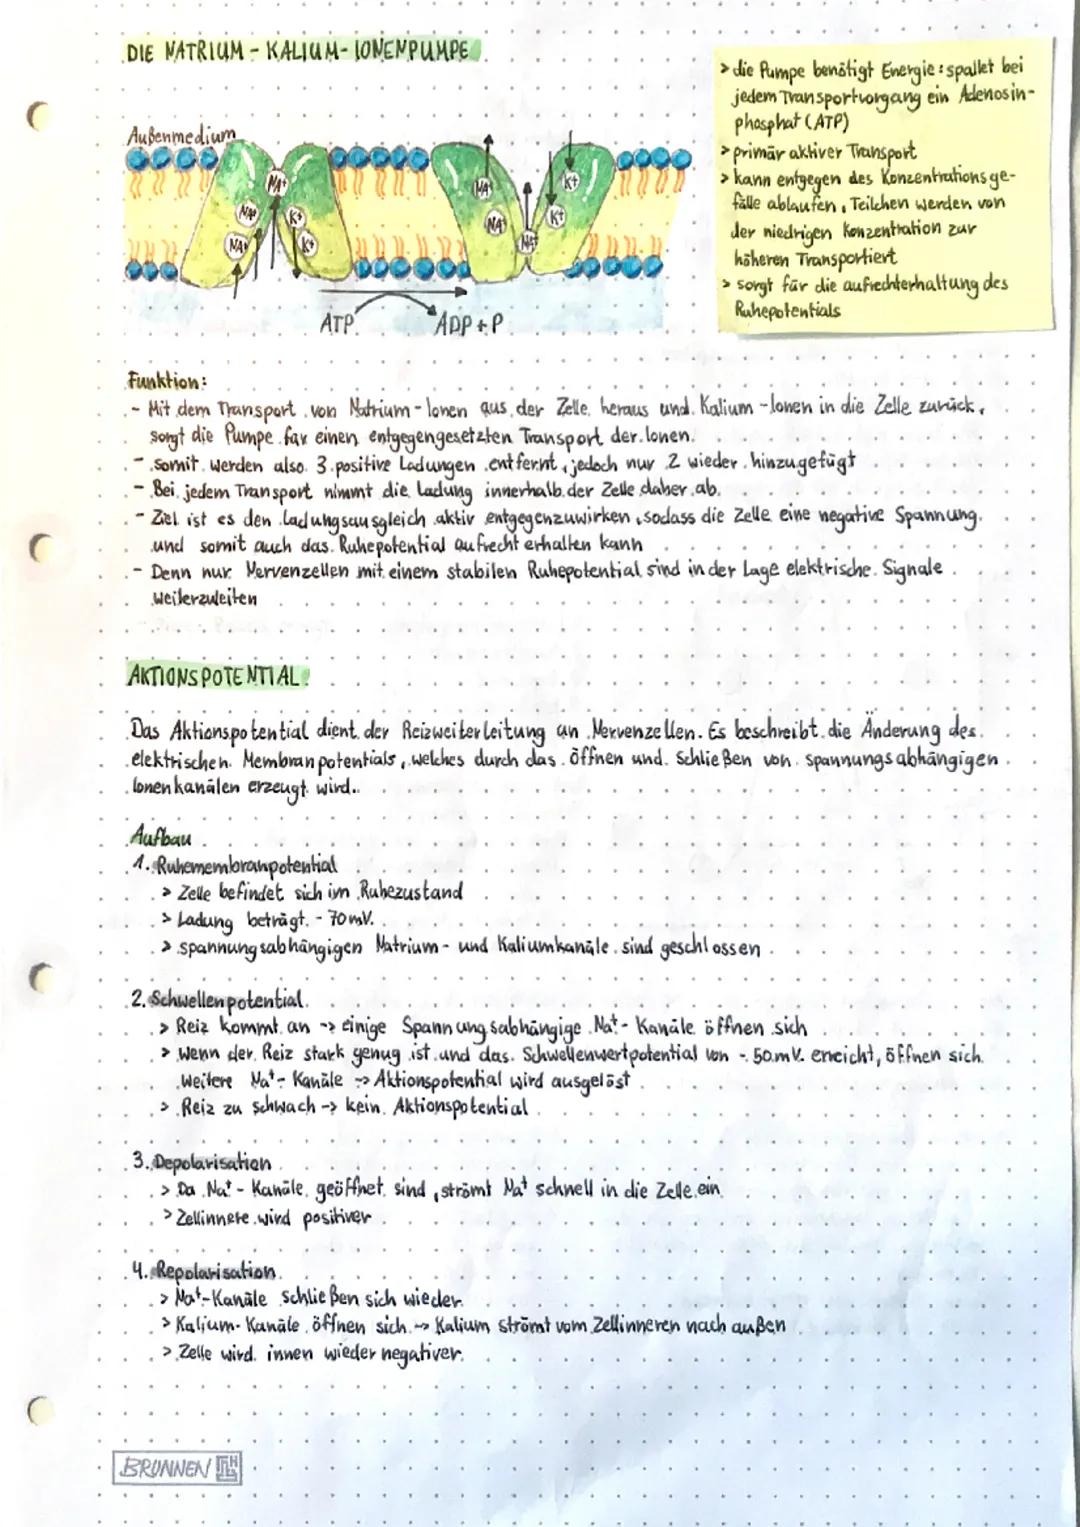 DIE NATRIUM - KALIUM - IONENPUMPE
> die Pumpe benötigt Energie: spallet bei
jedem Transportvorgang ein Adenosin-
phosphat (ATP)
> primär aktiver Transport
> kann entgegen des Konzentrationsge-
fälle ablaufen, Teilchen werden von
der niedrigen Konzentration zur
höheren Transportiert
> sorgt für die aufrechterhaltung des
Ruhepotentials
Außenmedium
NA+ NA+ NA+ K+ K+
NA+ NA+ NA+ K+ K+
ATP ADP + P
Funktion:
- Mit dem Transport von Natrium-Ionen aus der Zelle heraus und Kalium-Ionen in die Zelle zurück,
sorgt die Pumpe für einen entgegengesetzten Transport der Ionen.
- somit werden also 3 positive Ladungen entfernt, jedoch nur 2 wieder hinzugefügt
- Bei jedem Transport nimmt die Ladung innerhalb der Zelle daher ab.
- Ziel ist es den Ladungsausgleich aktiv entgegenzuwirken, sodass die Zelle eine negative Spannung
und somit auch das Ruhepotential aufrecht erhalten kann
- Denn nur Nervenzellen mit einem stabilen Ruhepotential sind in der Lage elektrische Signale
weiterzuleiten
AKTIONSPOTENTIAL
Das Aktionspotential dient der Reizweiterleitung an Nervenzellen. Es beschreibt die Änderung des
elektrischen Membranpotentials, welches durch das öffnen und schließen von spannungsabhängigen
Ionenkanälen erzeugt wird.
Aufbau
1. Ruhemembranpotential
> Zelle befindet sich im Ruhezustand
> Ladung beträgt - 70 mV.
> spannungsabhängigen Natrium- und Kaliumkanäle sind geschlossen
2. Schwellenpotential
> Reiz kommt an -> einige Spannungsabhängige Na+- Kanäle öffnen sich
> Wenn der Reiz stark genug ist und das Schwellenwertpotential von - 50 mV erreicht, öffnen sich
weitere Na+- Kanäle -> Aktionspotential wird ausgelöst
> Reiz zu schwach -> kein Aktionspotential
3. Depolarisation
> Da Na+ - Kanäle geöffnet sind, strömt Na+ schnell in die Zelle ein
> Zellinnere wird positiver
4. Repolarisation
> Na+-Kanäle schließen sich wieder
> Kalium-Kanäle öffnen sich -> Kalium strömt vom Zellinneren nach außen
> Zelle wird innen wieder negativer
BRUNNEN